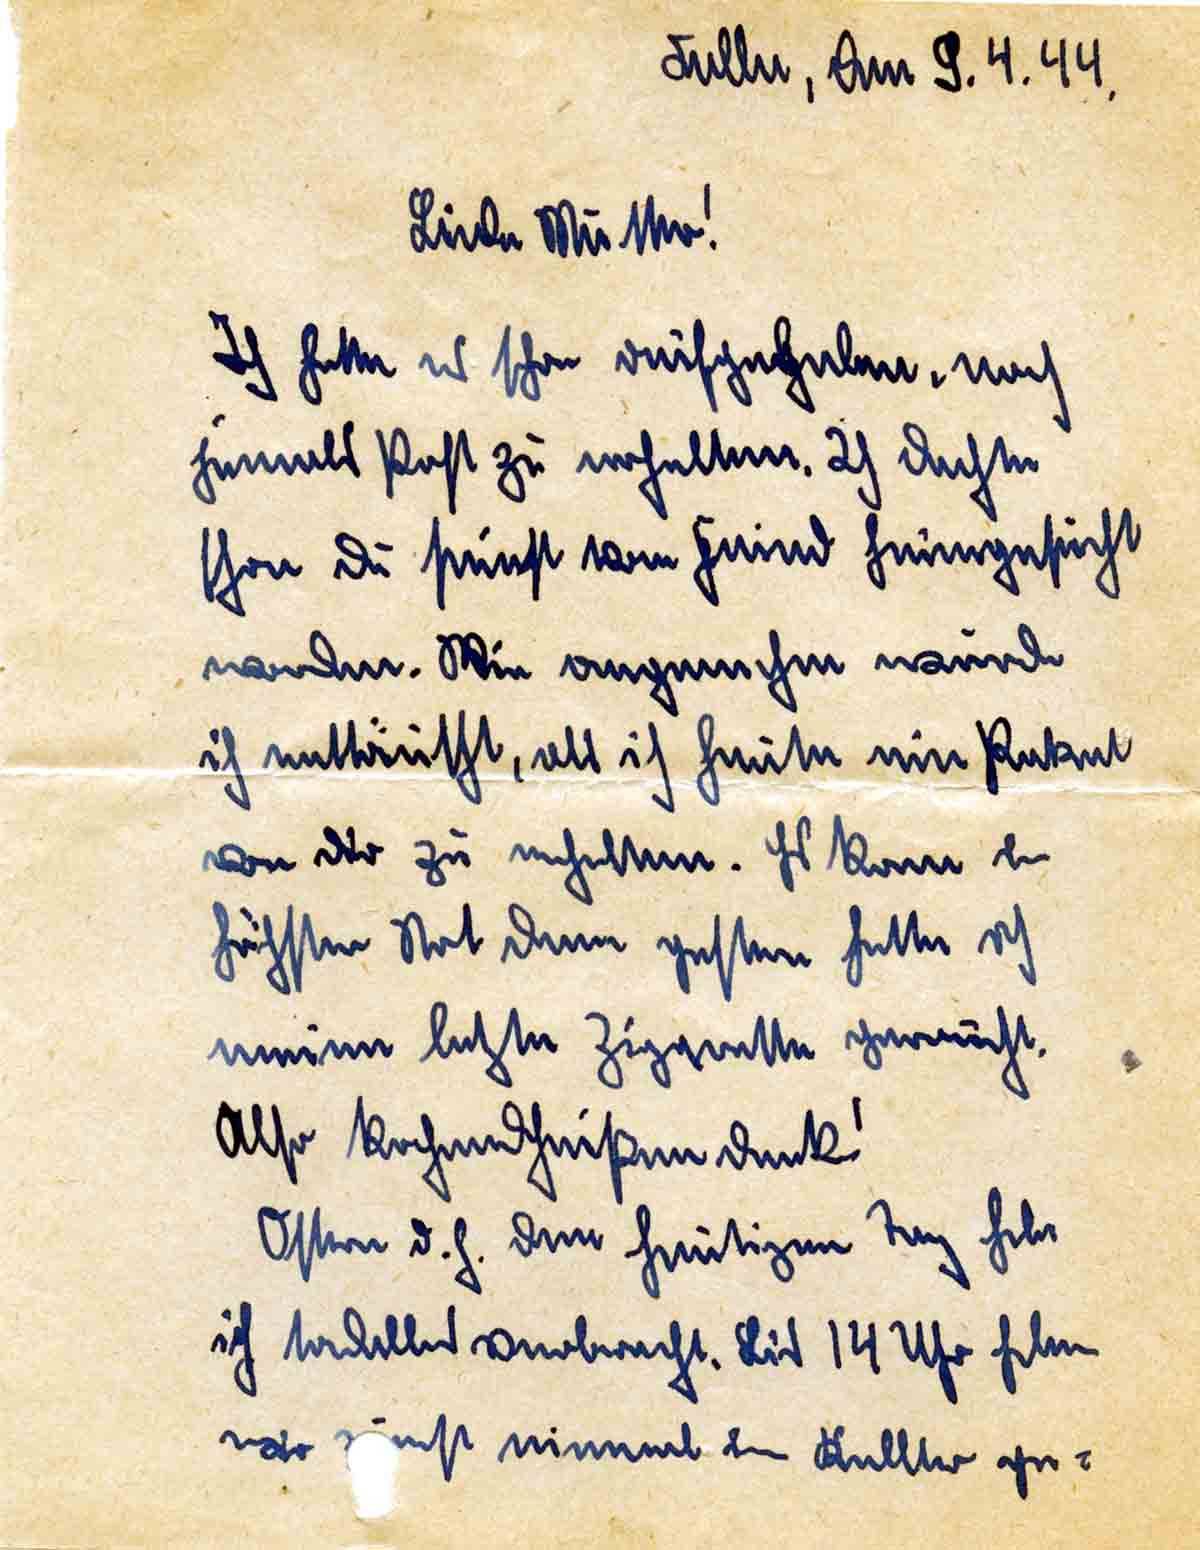 den 9.4.44.
Liebe Mutter!
Ich hatte es schon aufgegeben, noch
jemals Post zu erhalten. Ich dachte
schon Du seiest vom Feind heimgesucht
worden. Wie angenehm wurde
ich enttäuscht, als ich heute ein Paket
von dir zu erhalten. Es kam in
höchster Not denn gestern hatte ich
meine letzte Zigarette geraucht.
Also dank!
Ostern d.h. den heutigen Tag habe
ich tadellos verbracht. Bis 14 Uhr haben
wir einmal im ge=